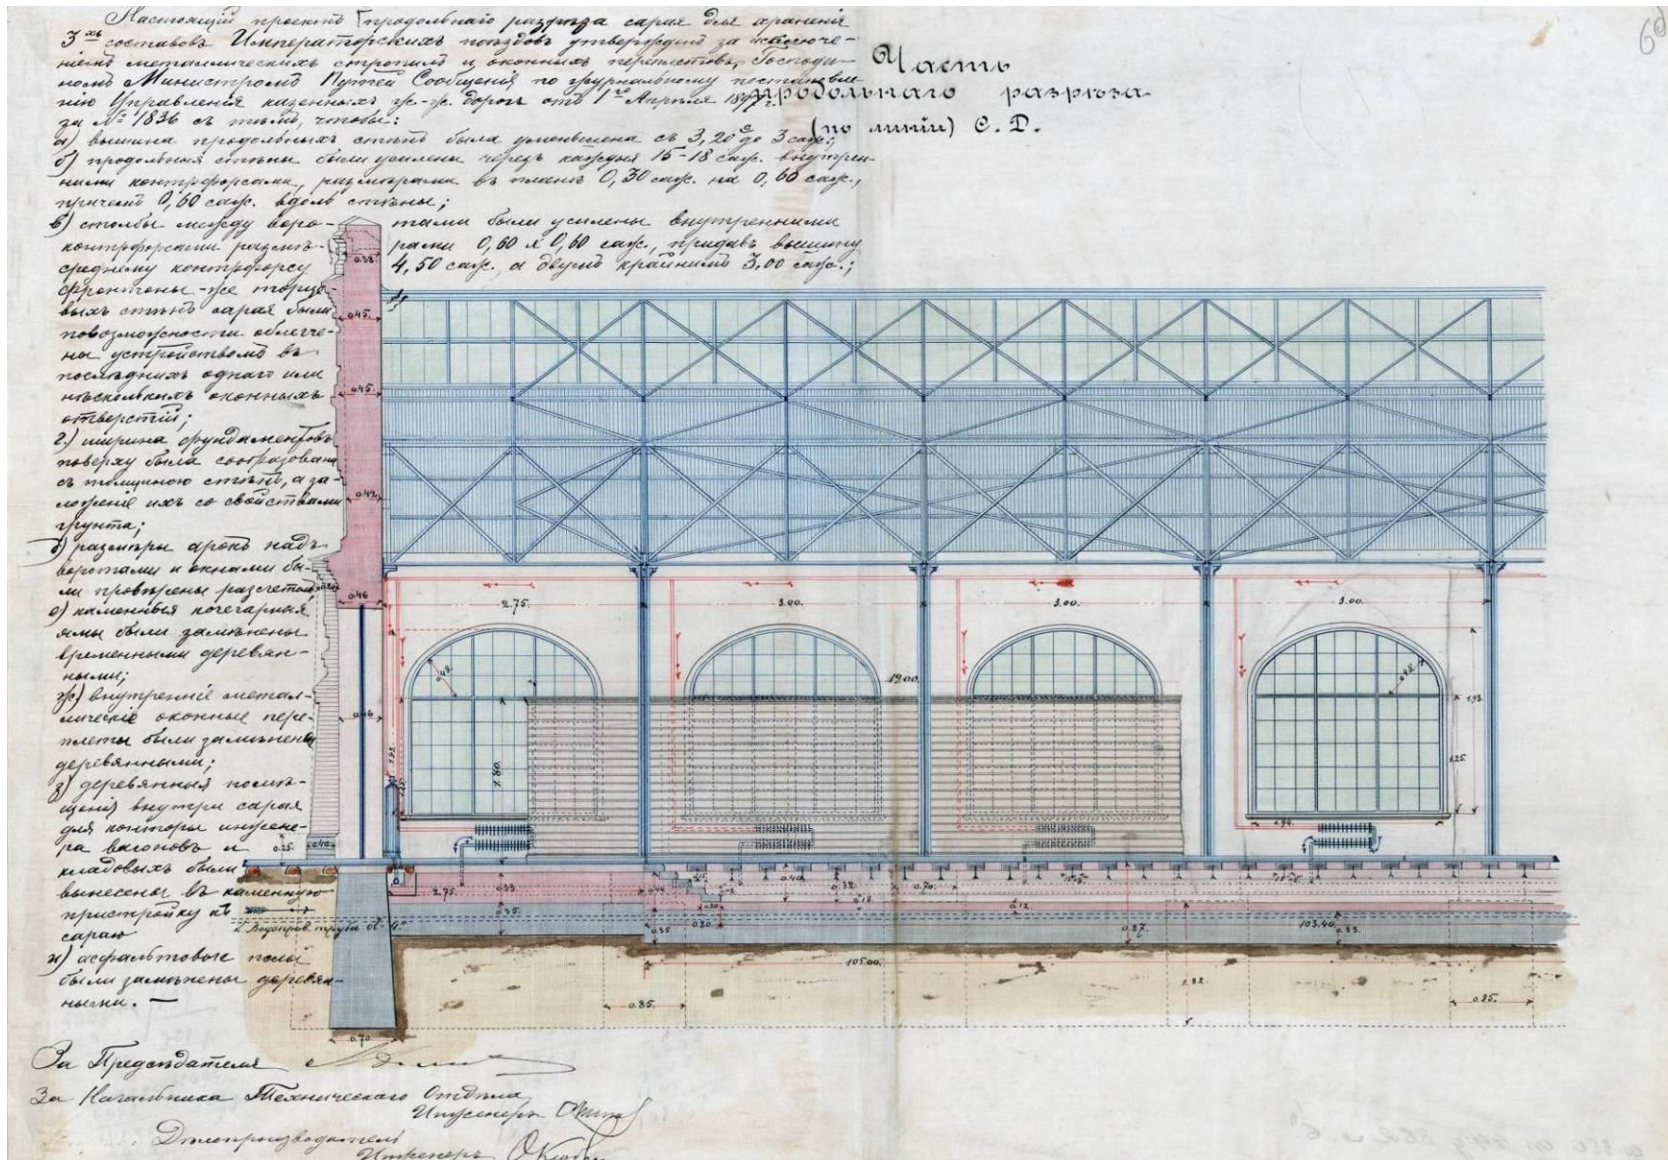 Настоящій проектъ продольнаго разрѣза сарая для храненія
3хъ составовъ Императорскихъ поѣздовъ утвержденъ за исключе-
ніемъ металлическихъ стропилъ и оконныхъ переплетовъ, Господи-
номъ Министромъ Путей Сообщенія по журнальному постановле-
нію Управленія казенныхъ ж.-ж. дорогъ отъ 1го Апрѣля 1897 г.
за № 1836 съ тѣмъ, чтобы:
а) вышина продольныхъ стѣнъ была уменьшена съ 3,20 с до 3 саж;
б) продольныя стѣны были усилены черезъ каждыя 15-18 саж. внутрен-
ними контрфорсами, размѣрами въ планѣ 0,30 саж. на 0,60 саж.,
причемъ 0,60 саж. вдоль стѣны;
в) столбы между воро- тами были усилены внутренними
контрфорсами размѣ- рами 0,60 х 0,60 саж., придавъ вышину
среднему контрфорсу 4,50 саж. а двумъ крайнимъ 3,00 саж.;
фронтоны-же торцо-
выхъ стѣнъ сарая были
по возможности облегче-
ны устройствомъ въ
послѣднихъ одного или
нѣсколькихъ оконныхъ
отверстій;
г.) ширина фундаментовъ
поверху была сообразована
съ толщиною стѣнъ, а за-
ложеніе ихъ со свойствами
грунта;
д) размѣры арокъ надъ
воротами и окнами бы-
ли провѣрены разсчетомъ
е) каменныя кочегарныя
ямы были замѣнены
временными деревян-
ными;
ж) внутренніе метал-
лическіе оконные пере-
плеты были замѣнены
деревянными;
з) деревянныя помѣ-
щенія внутри сарая
для конторы инжене-
ра вагоновъ и
кладовыхъ были
вынесены въ каменную
пристройку къ
сараю
и) асфальтовые полы
были замѣнены деревян-
ными. —
Часть
продольнаго разрѣза
(по линіи) С. D.
0.38
0.45.
0.45.
0.42
0.46
2.75.
3.00.
3.00.
3.00.
12.00.
0.46
1.80.
1.93.
1.25
0.25
2.75
0.33
0.35
0.40
0.32
0.70
0.18
0.12
0.20
0.80
0.35
0.87
103.40
0.33
Водопров. труба d=4"
105.00.
1.32
0.85.
0.85
0.70
За Предсѣдателя
За Начальника Техническаго Отдѣла
Инженеръ
Дѣлопроизводитель
Инженеръ